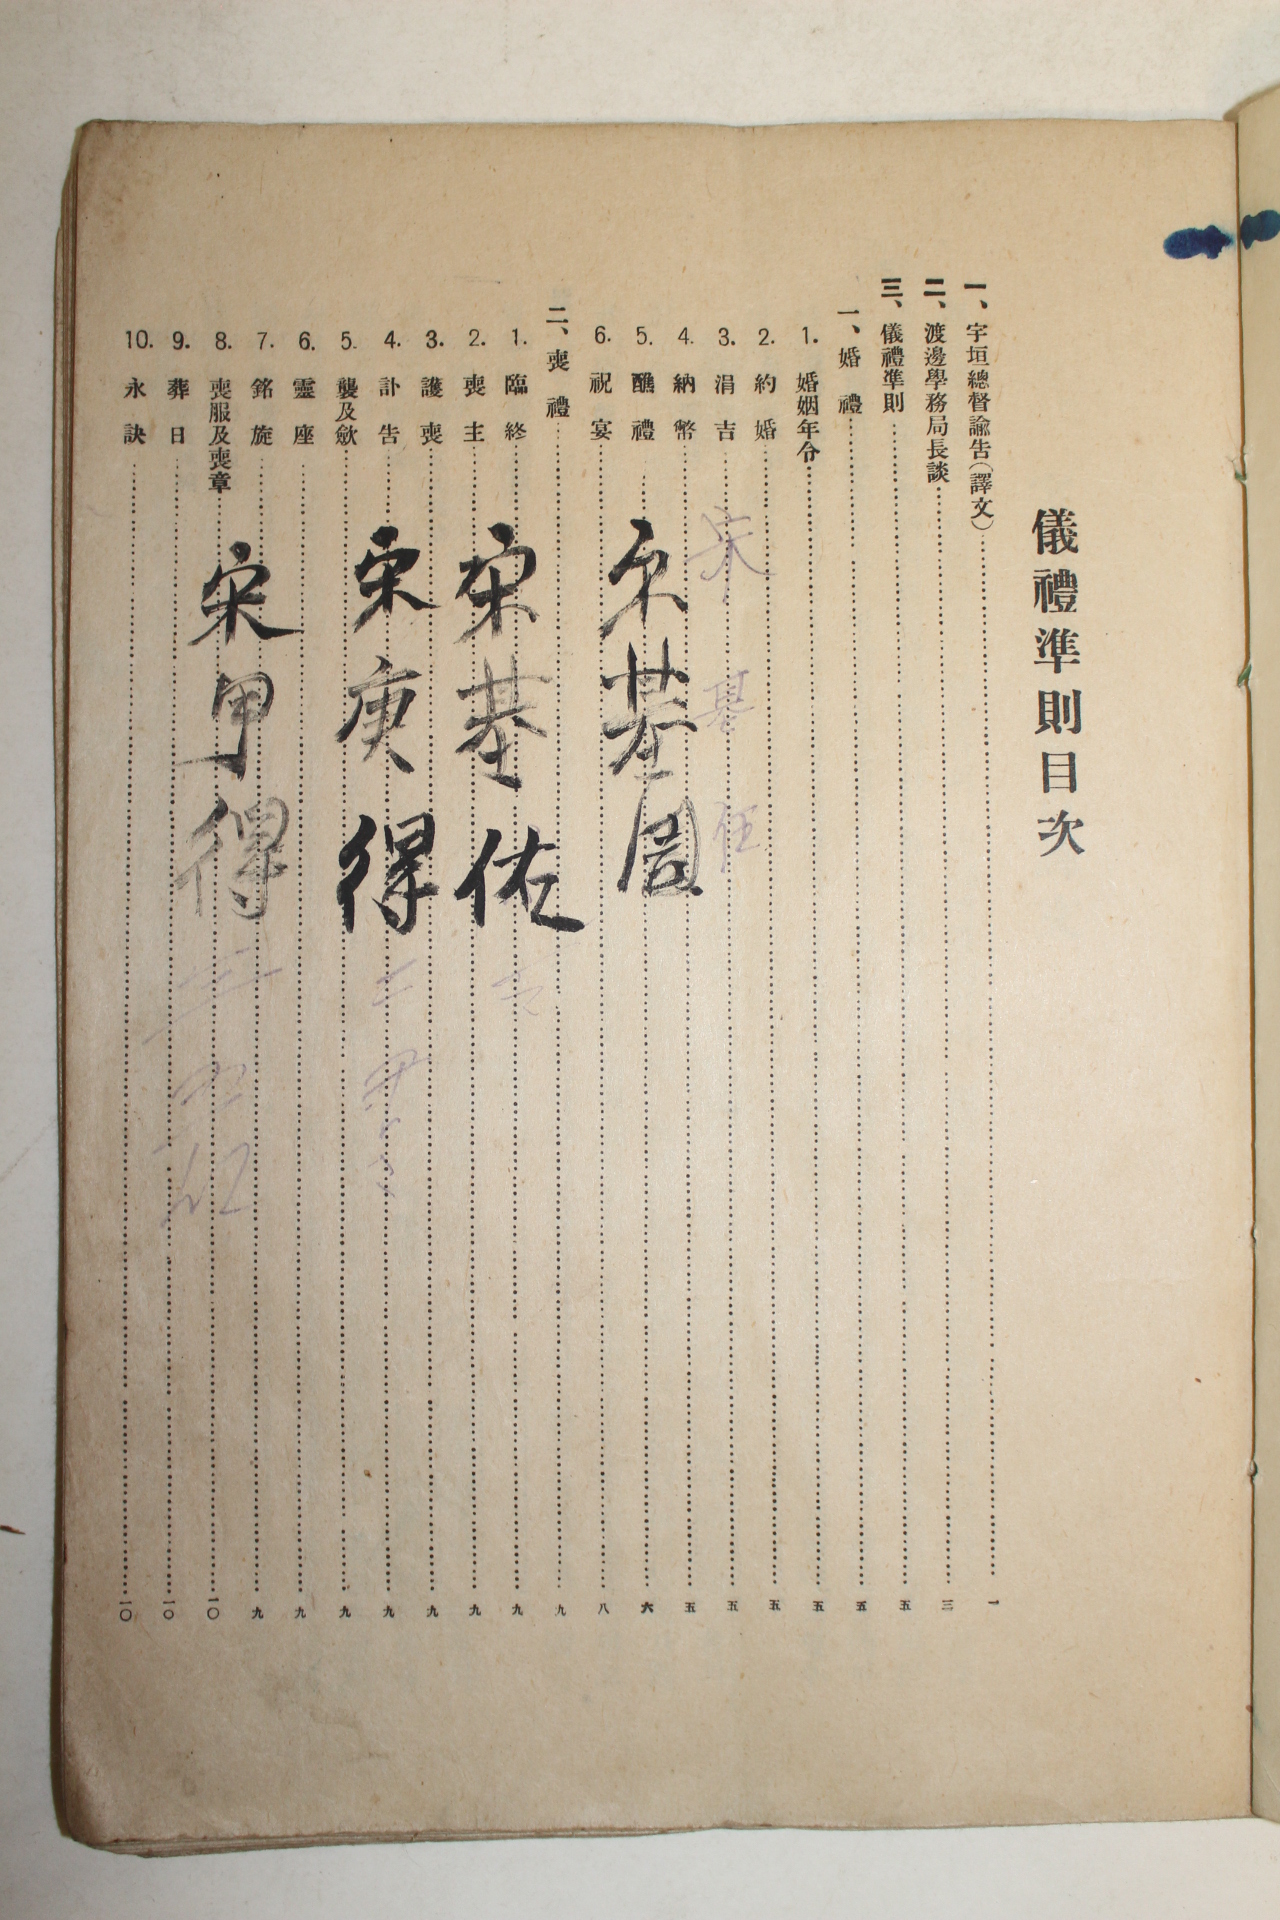 儀禮準則目次
一、宇垣總督諭告(譯文)……一
二、渡邊學務局長談……三
三、儀禮準則……五
一、婚禮……五
1. 婚姻年令……五
2. 約婚……五
3. 涓吉……五
4. 納幣……五
5. 醮禮……六
6. 祝宴……八
二、喪禮……九
1. 臨終……九
2. 喪主……九
3. 護喪……九
4. 訃告……九
5. 襲及歛……九
6. 靈座……九
7. 銘旌……九
8. 喪服及喪章……一〇
9. 葬日……一〇
10. 永訣……一〇
宋基
宋基
宋基佑
宋庚得
宋甲得